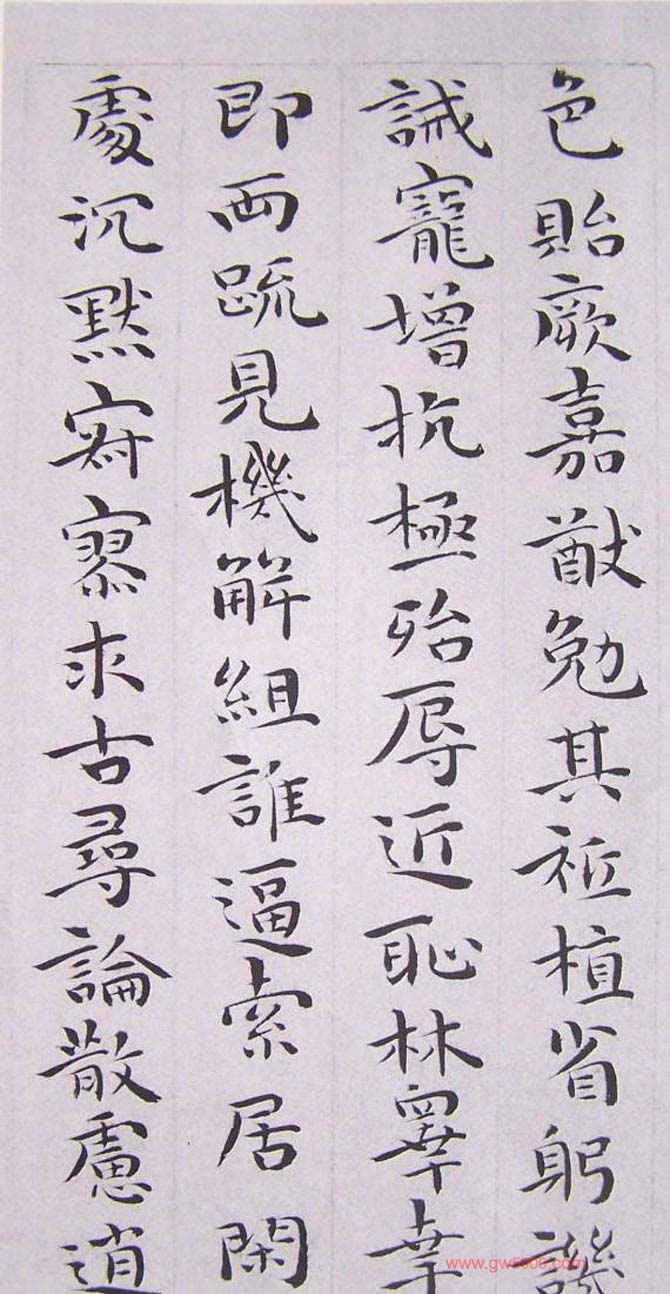 色貽厥嘉猷勉其祗植省躬譏
誡寵增抗極殆辱近恥林睾幸
即兩疏見機解組誰逼索居閑
處沉默寂寥求古尋論散慮逍
www.gw5000.com